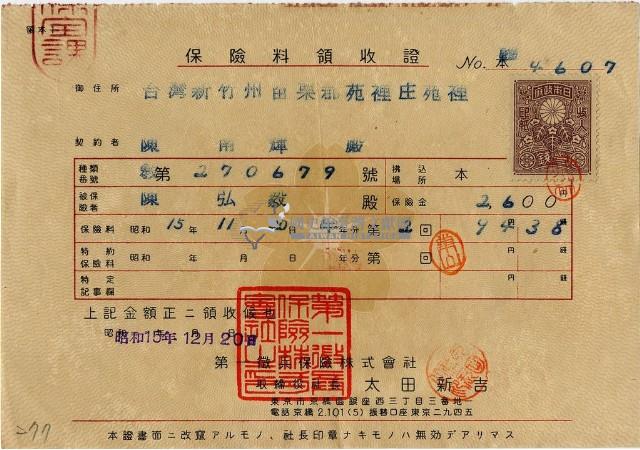 領本
保險料領收證
No. 本 4607
御住所 台灣新竹州苗栗郡苑裡庄苑裡
契約者 陳 南 輝 殿
種類番號 第 270679 號 拂込場所 本
被保險者 陳 弘 毅 殿 保險金 2,600 円
保險料 昭和 15 年 11 月 20 日 年分 第 2 回 94 円 38 錢
特約保險料 昭和 年 月 日 年分 第 回 円 錢
特定記事欄
上記金額正ニ領收候也
昭和 年 月 日
昭和15年12月20日
第一徵兵保險株式會社
取締役社長 太田新吉
東京市京橋區銀座西三丁目三番地
電話京橋2.101(5)振替口座東京二九四五
本證書面ニ改竄アルモノ、社長印章ナキモノハ無効デアリマス
277